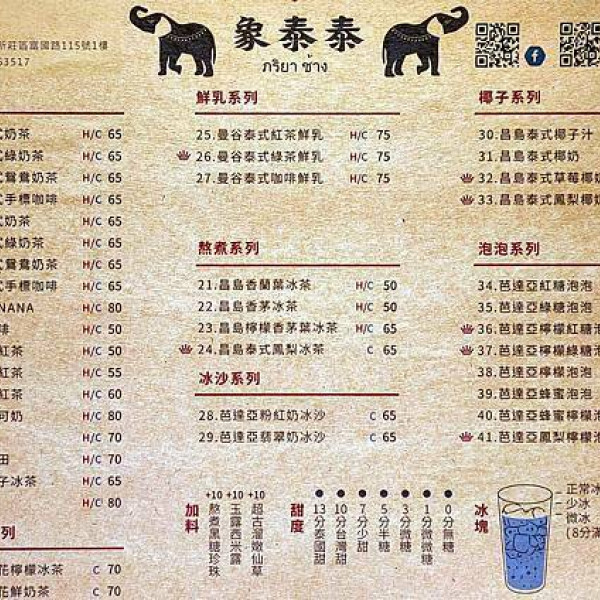 象泰泰
ภริยา ช้าง
新莊區富國路115號1樓
63517
奶茶 H/C 65
式綠奶茶 H/C 65
式鴛鴦奶茶 H/C 65
式手標咖啡 H/C 65
式奶茶 H/C 65
式綠奶茶 H/C 65
式鴛鴦奶茶 H/C 65
式手標咖啡 H/C 65
NANA H/C 80
啡 H/C 50
紅茶 H/C 50
紅茶 H/C 55
紅茶 H/C 60
可奶 H/C 80
H/C 70
田 H/C 70
子冰茶 H/C 65
H/C 80
系列
花檸檬冰茶 C 70
花鮮奶茶 C 70
鮮乳系列
25.曼谷泰式紅茶鮮乳 H/C 75
26.曼谷泰式綠茶鮮乳 H/C 75
27.曼谷泰式咖啡鮮乳 H/C 75
熬煮系列
21.昌島香蘭葉冰茶 H/C 50
22.昌島香茅冰茶 H/C 50
23.昌島檸檬香茅葉冰茶 H/C 65
24.昌島泰式鳳梨冰茶 C 65
冰沙系列
28.芭達亞粉紅奶冰沙 C 65
29.芭達亞翡翠奶冰沙 C 65
椰子系列
30.昌島泰式椰子汁
31.昌島泰式椰奶
32.昌島泰式草莓椰奶
33.昌島泰式鳳梨椰奶
泡泡系列
34.芭達亞紅糖泡泡
35.芭達亞綠糖泡泡
36.芭達亞檸檬紅糖泡
37.芭達亞檸檬綠糖泡
38.芭達亞檸檬泡泡
39.芭達亞蜂蜜泡泡
40.芭達亞蜂蜜檸檬泡
41.芭達亞鳳梨檸檬泡
加料
+10 熬煮黑糖珍珠
+10 玉露西米露
+10 超古溜嫩仙草
甜度
13分泰國甜
10分台灣甜
7分少甜
5分半糖
3分微糖
1分微微糖
0分無糖
冰塊
正常冰
少冰
微冰
(8分滿